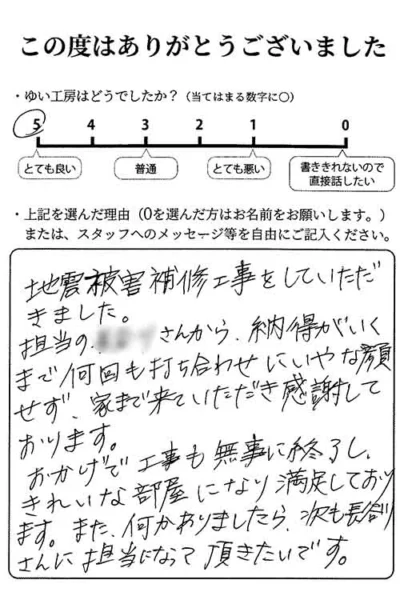 この度はありがとうございました
・ゆい工房はどうでしたか？（当てはまる数字に〇）
5 4 3 2 1 0
とても良い 普通 とても悪い 書ききれないので
直接話したい
・上記を選んだ理由（0を選んだ方はお名前をお願いします。）
または、スタッフへのメッセージ等を自由にご記入ください。
地震被害補修工事をしていただ
きました。
担当の さんから、納得がいく
まで何回も打ち合わせにいやな顔
せず、家まで来ていただき感謝して
おります。
おかげで工事も無事に終了し、
きれいな部屋になり満足しており
ます。また、何かありましたら、次も長谷川
さんに担当になって頂きたいです。